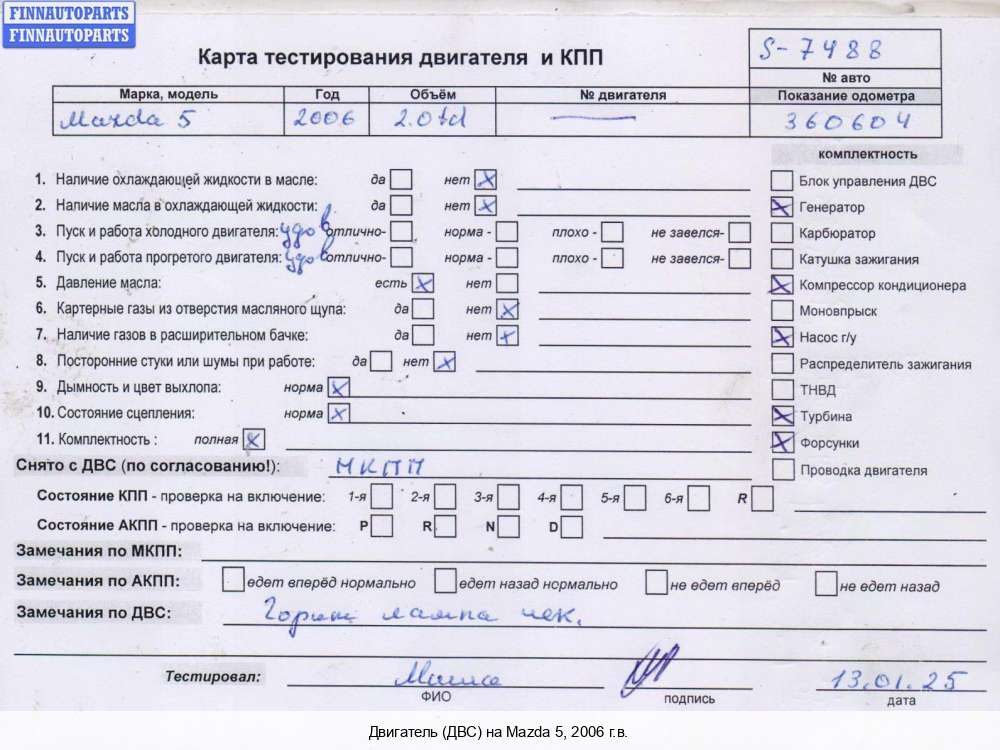 FINNAUTOPARTS
FINNAUTOPARTS
Карта тестирования двигателя и КПП
S-7488
№ авто
Марка, модель Год Объём № двигателя Показание одометра
Mazda 5 2006 2.0td — 360604
комплектность
1. Наличие охлаждающей жидкости в масле: да нет X
Блок управления ДВС
2. Наличие масла в охлаждающей жидкости: да нет X
X Генератор
3. Пуск и работа холодного двигателя: удов отлично- норма - плохо - не завелся-
Карбюратор
4. Пуск и работа прогретого двигателя: удов отлично- норма - плохо - не завелся-
Катушка зажигания
5. Давление масла: есть X нет
X Компрессор кондиционера
6. Картерные газы из отверстия масляного щупа: да нет X
Моновпрыск
7. Наличие газов в расширительном бачке: да нет X
X Насос г/у
8. Посторонние стуки или шумы при работе: да нет X
Распределитель зажигания
9. Дымность и цвет выхлопа: норма X
ТНВД
10. Состояние сцепления: норма X
X Турбина
11. Комплектность : полная X
X Форсунки
Снято с ДВС (по согласованию!): МКПП
Проводка двигателя
Состояние КПП - проверка на включение: 1-я 2-я 3-я 4-я 5-я 6-я R
Состояние АКПП - проверка на включение: P R N D
Замечания по МКПП:
Замечания по АКПП: едет вперёд нормально едет назад нормально не едет вперёд не едет назад
Замечания по ДВС: Горит лампа чек.
Тестировал: 13.01.25
ФИО подпись дата
Двигатель (ДВС) на Mazda 5, 2006 г.в.